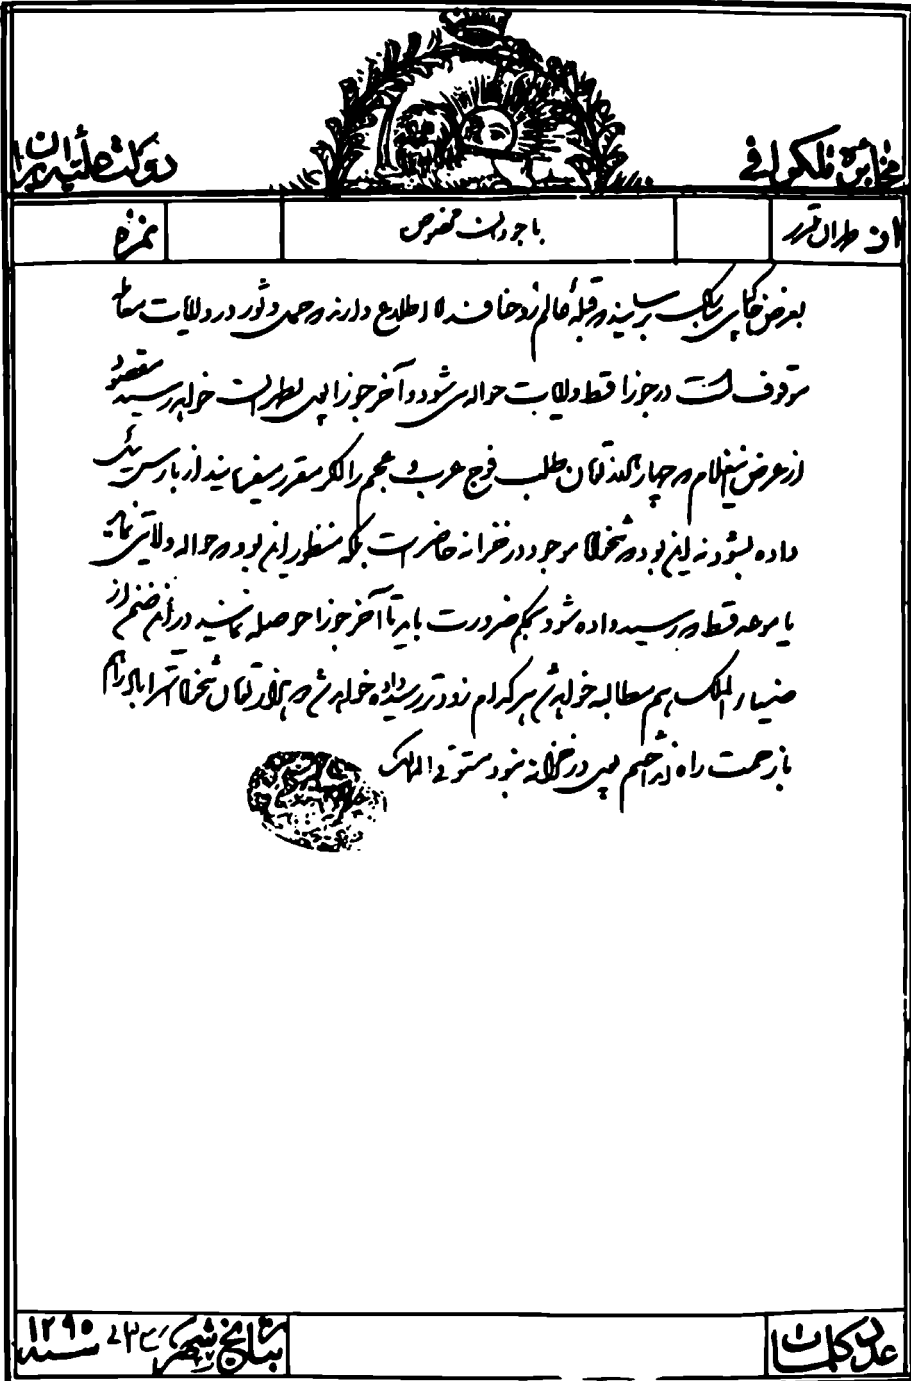 مخابره تلگرافی
دولت علیه ایران
از طهران
با جودان مخصوص
نمره
بعرض خاکپای مبارک برسانید که قبله عالم روحنا فداه اطلاع دارند که حمل و ثور در ولایات معامله
موقوف است در جوزا قسط ولایات حواله می‌شود و آخر جوزا پس بطهران خواهد رسید مقصود
از عرض که چهار هزار تومان طلب فوج عرب و عجم را اگر مقرر میفرمایند از بارس ئیل
داده بشود نه این بود که تنخواه موجود در خزانه حاضر است بلکه منظور این بود که حواله ولایتی نمایند
یا موعد قسط که رسید داده شود بحکم ضرورت باید تا آخر جوزا حوصله نمایند در این ضمن از
ضیاء الملک هم مطالبه خواهد شد هر کدام زودتر رسید داده خواهد شد که هزار تومان تنخواه استراباد را هم
با زحمت راه انداختیم پس در خزانه نبود مستوفی الممالک
عدد کلمات
بتاریخ شهر سنه ۱۲۹۰